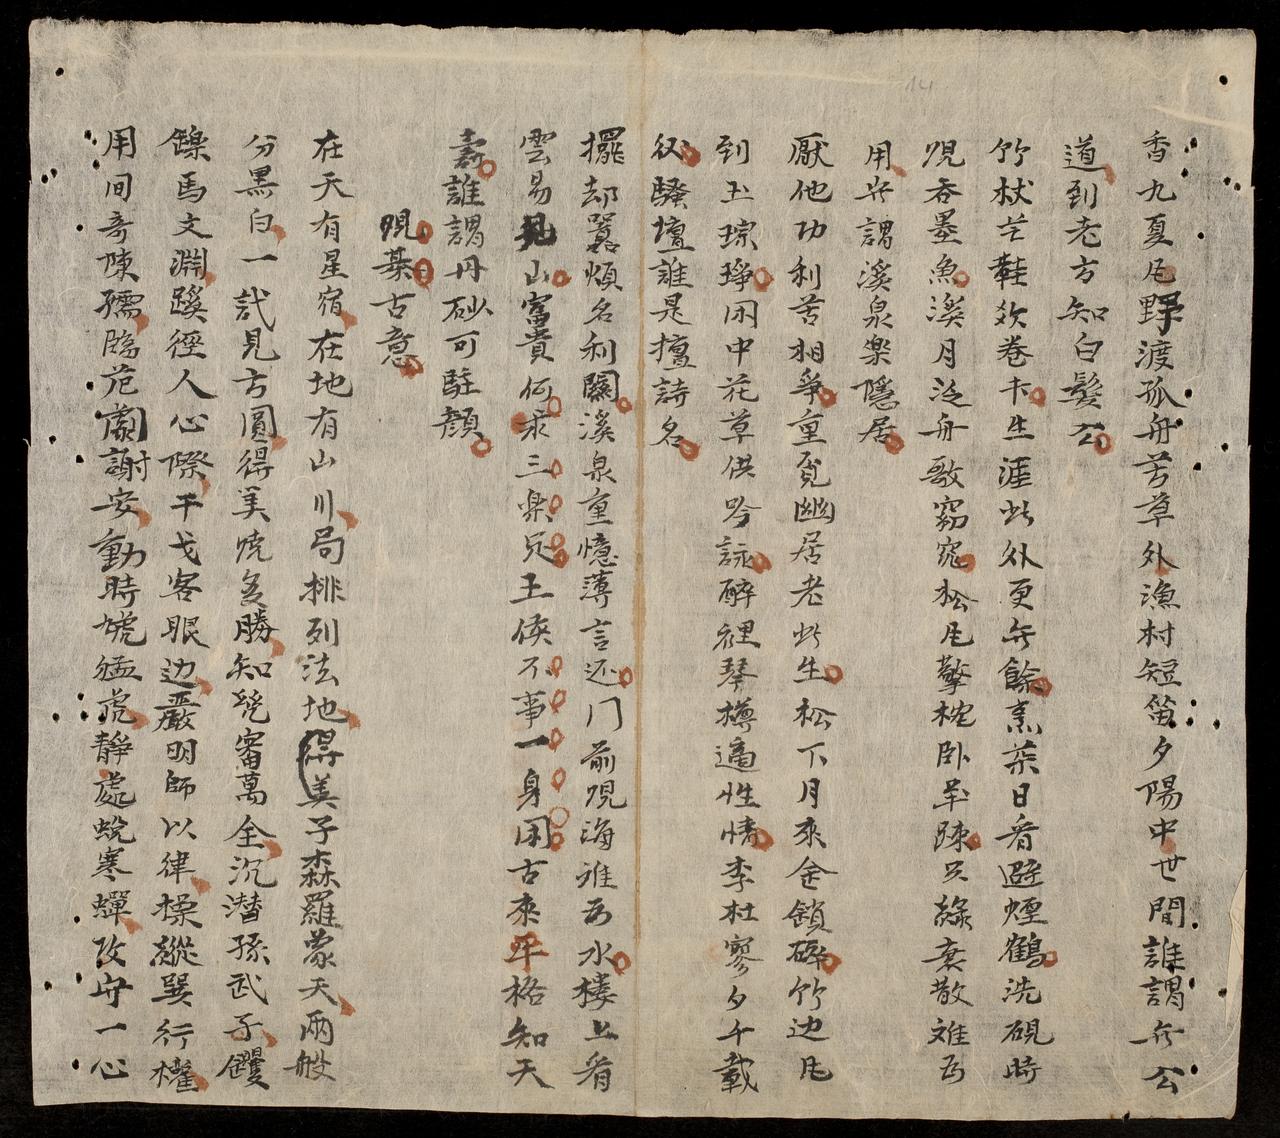 香九夏凡野渡孤舟芳草外漁村短笛夕陽中世間誰謂無公
道到老方知白髮公
竹杖芒鞋欻卷卞生涯此外更無餘烹茶日看避煙鶴洗硯時
吞墨魚溪月泛舟歌窈窕松凡擎枕卧平踈只緣衰散难為
用無謂溪泉樂隱居
厭他功利苦相爭重覓幽居老此生松下月來金鎖碎竹边凡
到玉琮琤闲中花草供吟詠醉裡琴樽適性情李杜寥夕千載
後騷壇誰是擅詩名
擺却嚣煩名利關溪泉重憶薄言还门前覌海难為水楼上看
雲易見山富貴何求三樂足王侯不事一身闲古來平格知天
壽誰謂丹砂可駐顏
覌棊古意
在天有星宿在地有山川局排列法地得美子森羅象天兩般
分黑白一試見方圓得美饒多勝知幾審萬全沉潛孫武子钁
鑠馬文淵蹊徑人心際干戈客眼边嚴明師以律操縱巽行權
用间奇陳孺臨危蔺謝安動時虓猛虎靜處蛻寒蟬攻守一心